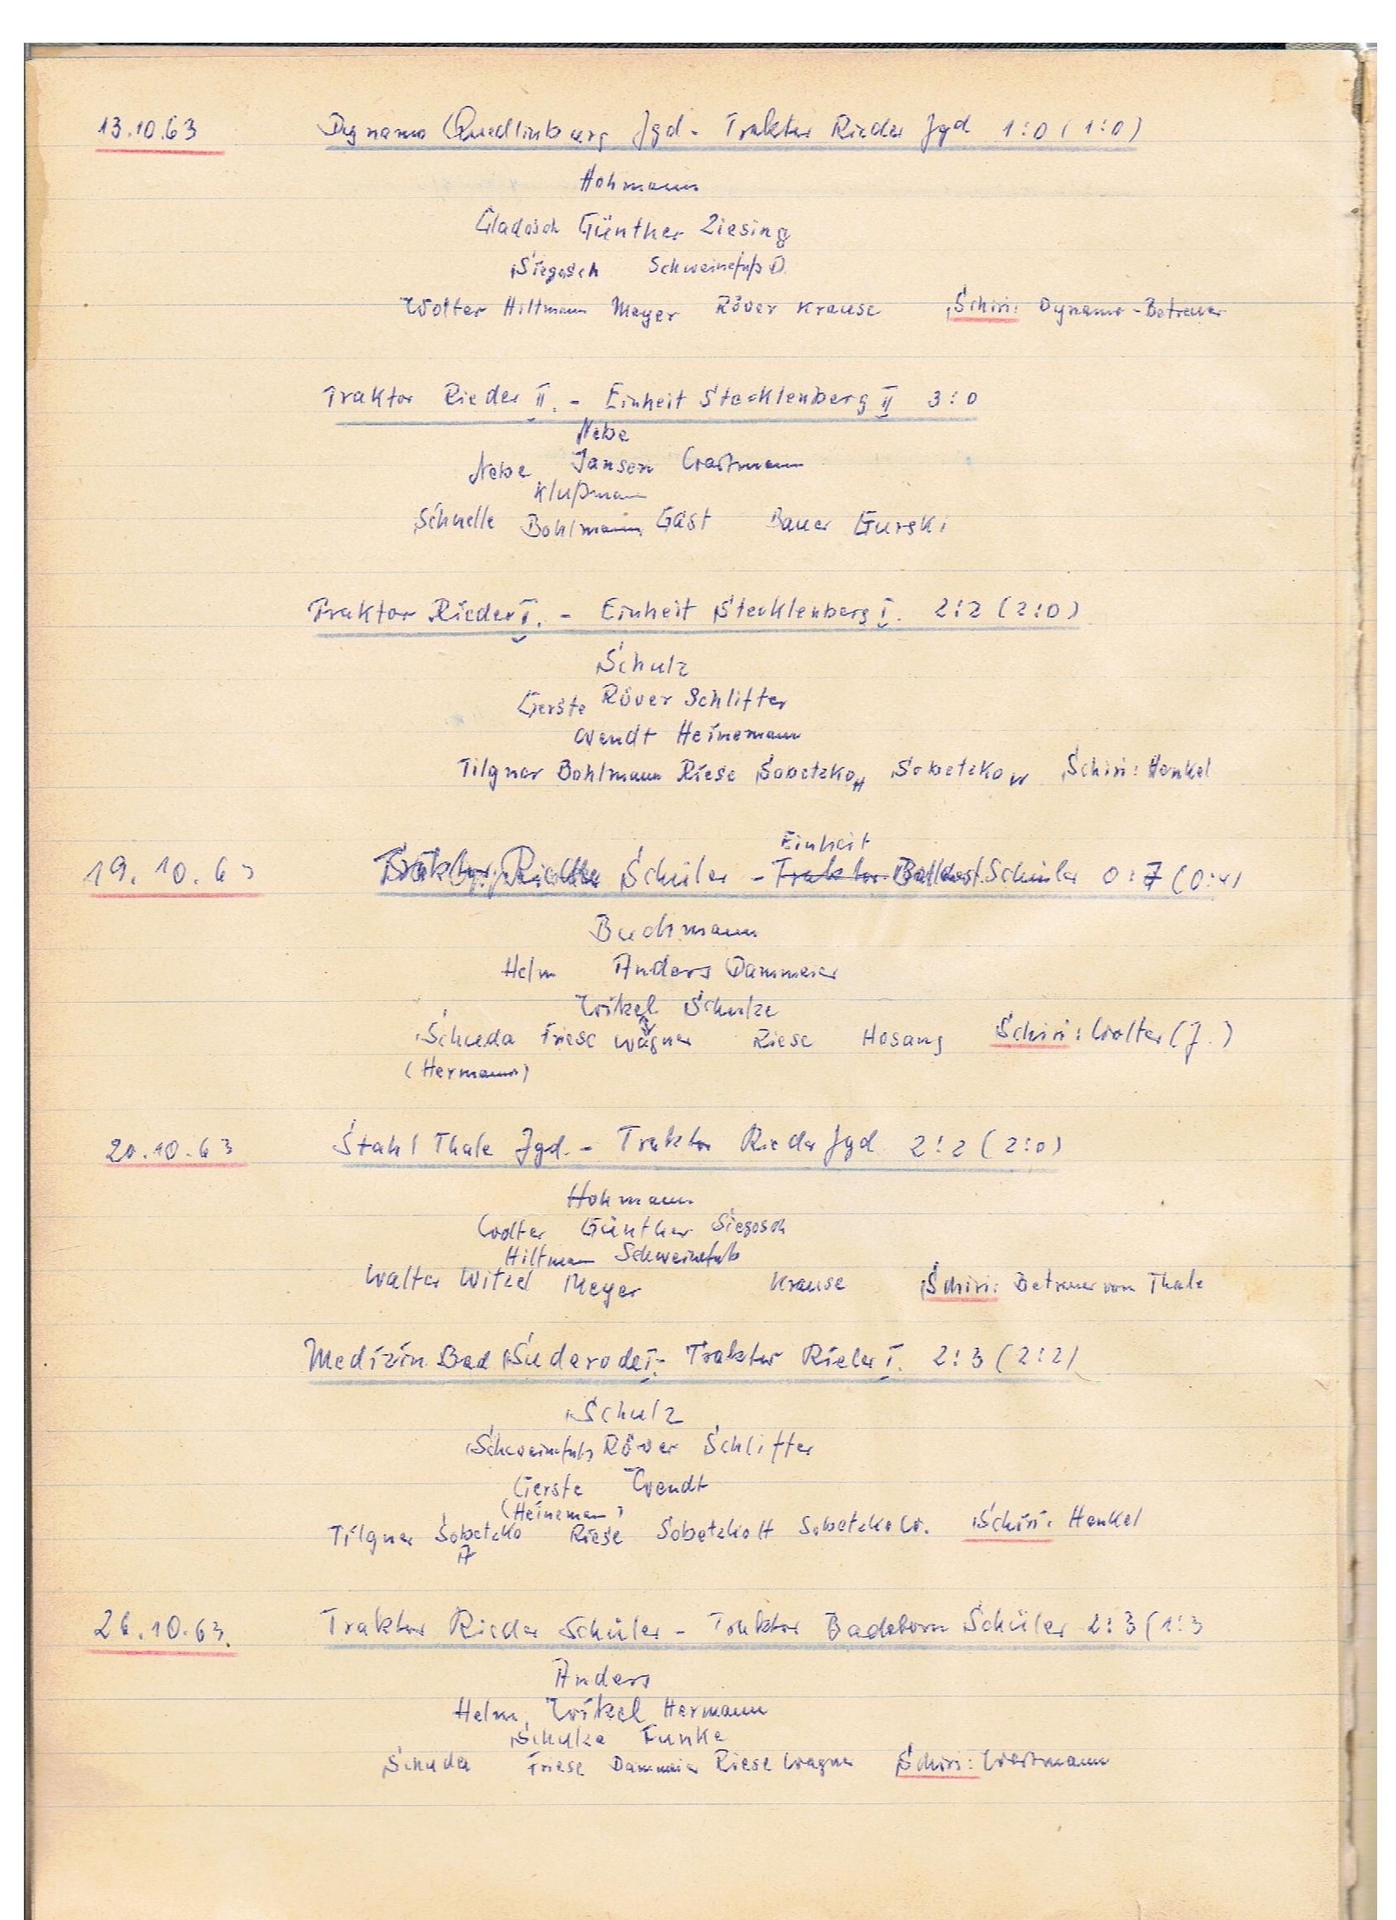 13.10.63 Dynamo Quedlinburg Jgd - Traktor Rieder Jgd 1:0 (1:0)
Hohmann
Gladosch Günther Ziesing
Siegosch Schweinefuß D.
Wolter Hiltmann Meyer Röver Krause Schiri: Dynamo-Betreuer
Traktor Rieder II. - Einheit Stecklenberg II 3:0
Nebe
Nebe Jansen Wertmann
Klußmann
Schnelle Bohlmann Gast Bauer Gurski
Traktor Rieder I. - Einheit Stecklenberg I. 2:2 (2:0)
Schulz
Gerste Röver Schlifter
Wendt Heinemann
Tilgner Bohlmann Riese Sobetzko H Sobetzko W Schiri: Henkel
Einheit
19.10.63 Schüler - Traktor Schüler 0:7 (0:4)
Buchmann
Helm Anders Dammeier
Witzel Schulze
Schuda Friese Wagner Riese Hosang Schiri: Wolter (J.)
(Hermann)
20.10.63 Stahl Thale Jgd. - Traktor Rieder Jgd 2:2 (2:0)
Hohmann
Wolter Günther Siegosch
Hiltmann Schweinefuß
Walter Witzel Meyer Krause Schiri: Betreuer von Thale
Medizin Bad Suderode I. - Traktor Rieder I. 2:3 (2:2)
Schulz
Schweinefuß Röver Schlifter
Gerste Wendt
(Heinemann)
Tilgner Sobetzko Riese Sobetzko H Sobetzko W. Schiri: Henkel
A
26.10.63. Traktor Rieder Schüler - Traktor Badeborn Schüler 2:3 (1:3
Anders
Helm Witzel Hermann
Schulze Funke
Schuda Friese Dammeier Riese Wagner Schiri: Wertmann